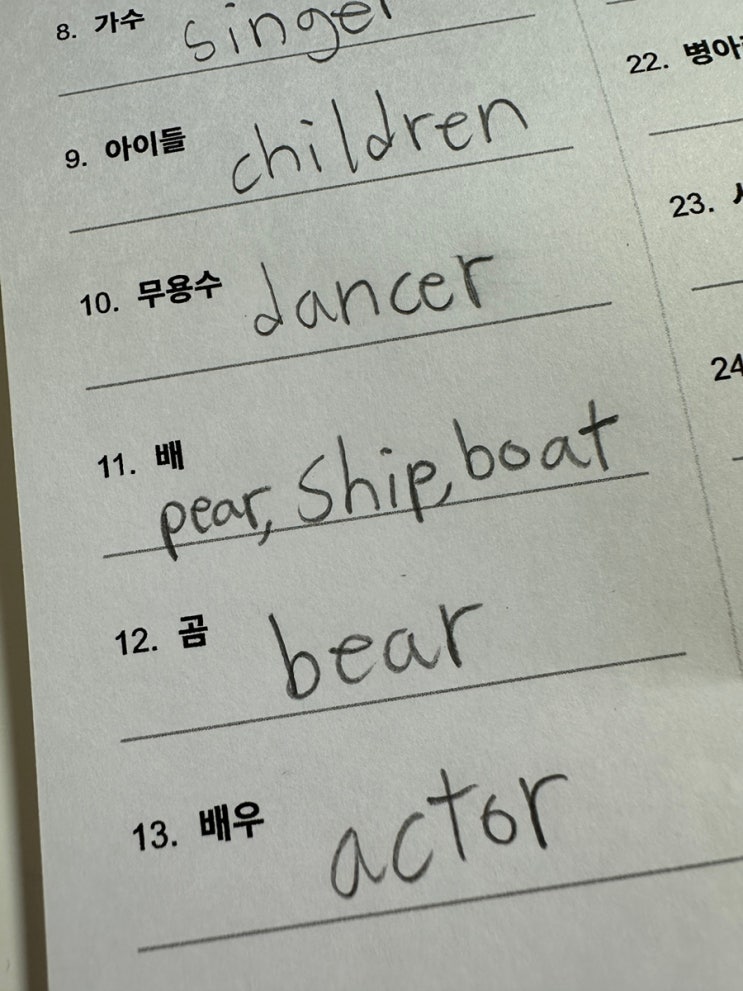 8. 가수 singer
9. 아이들 children
10. 무용수 dancer
11. 배
pear, Ship, boat
12. 곰 bear
13. 배우 actor
22.
23.
24